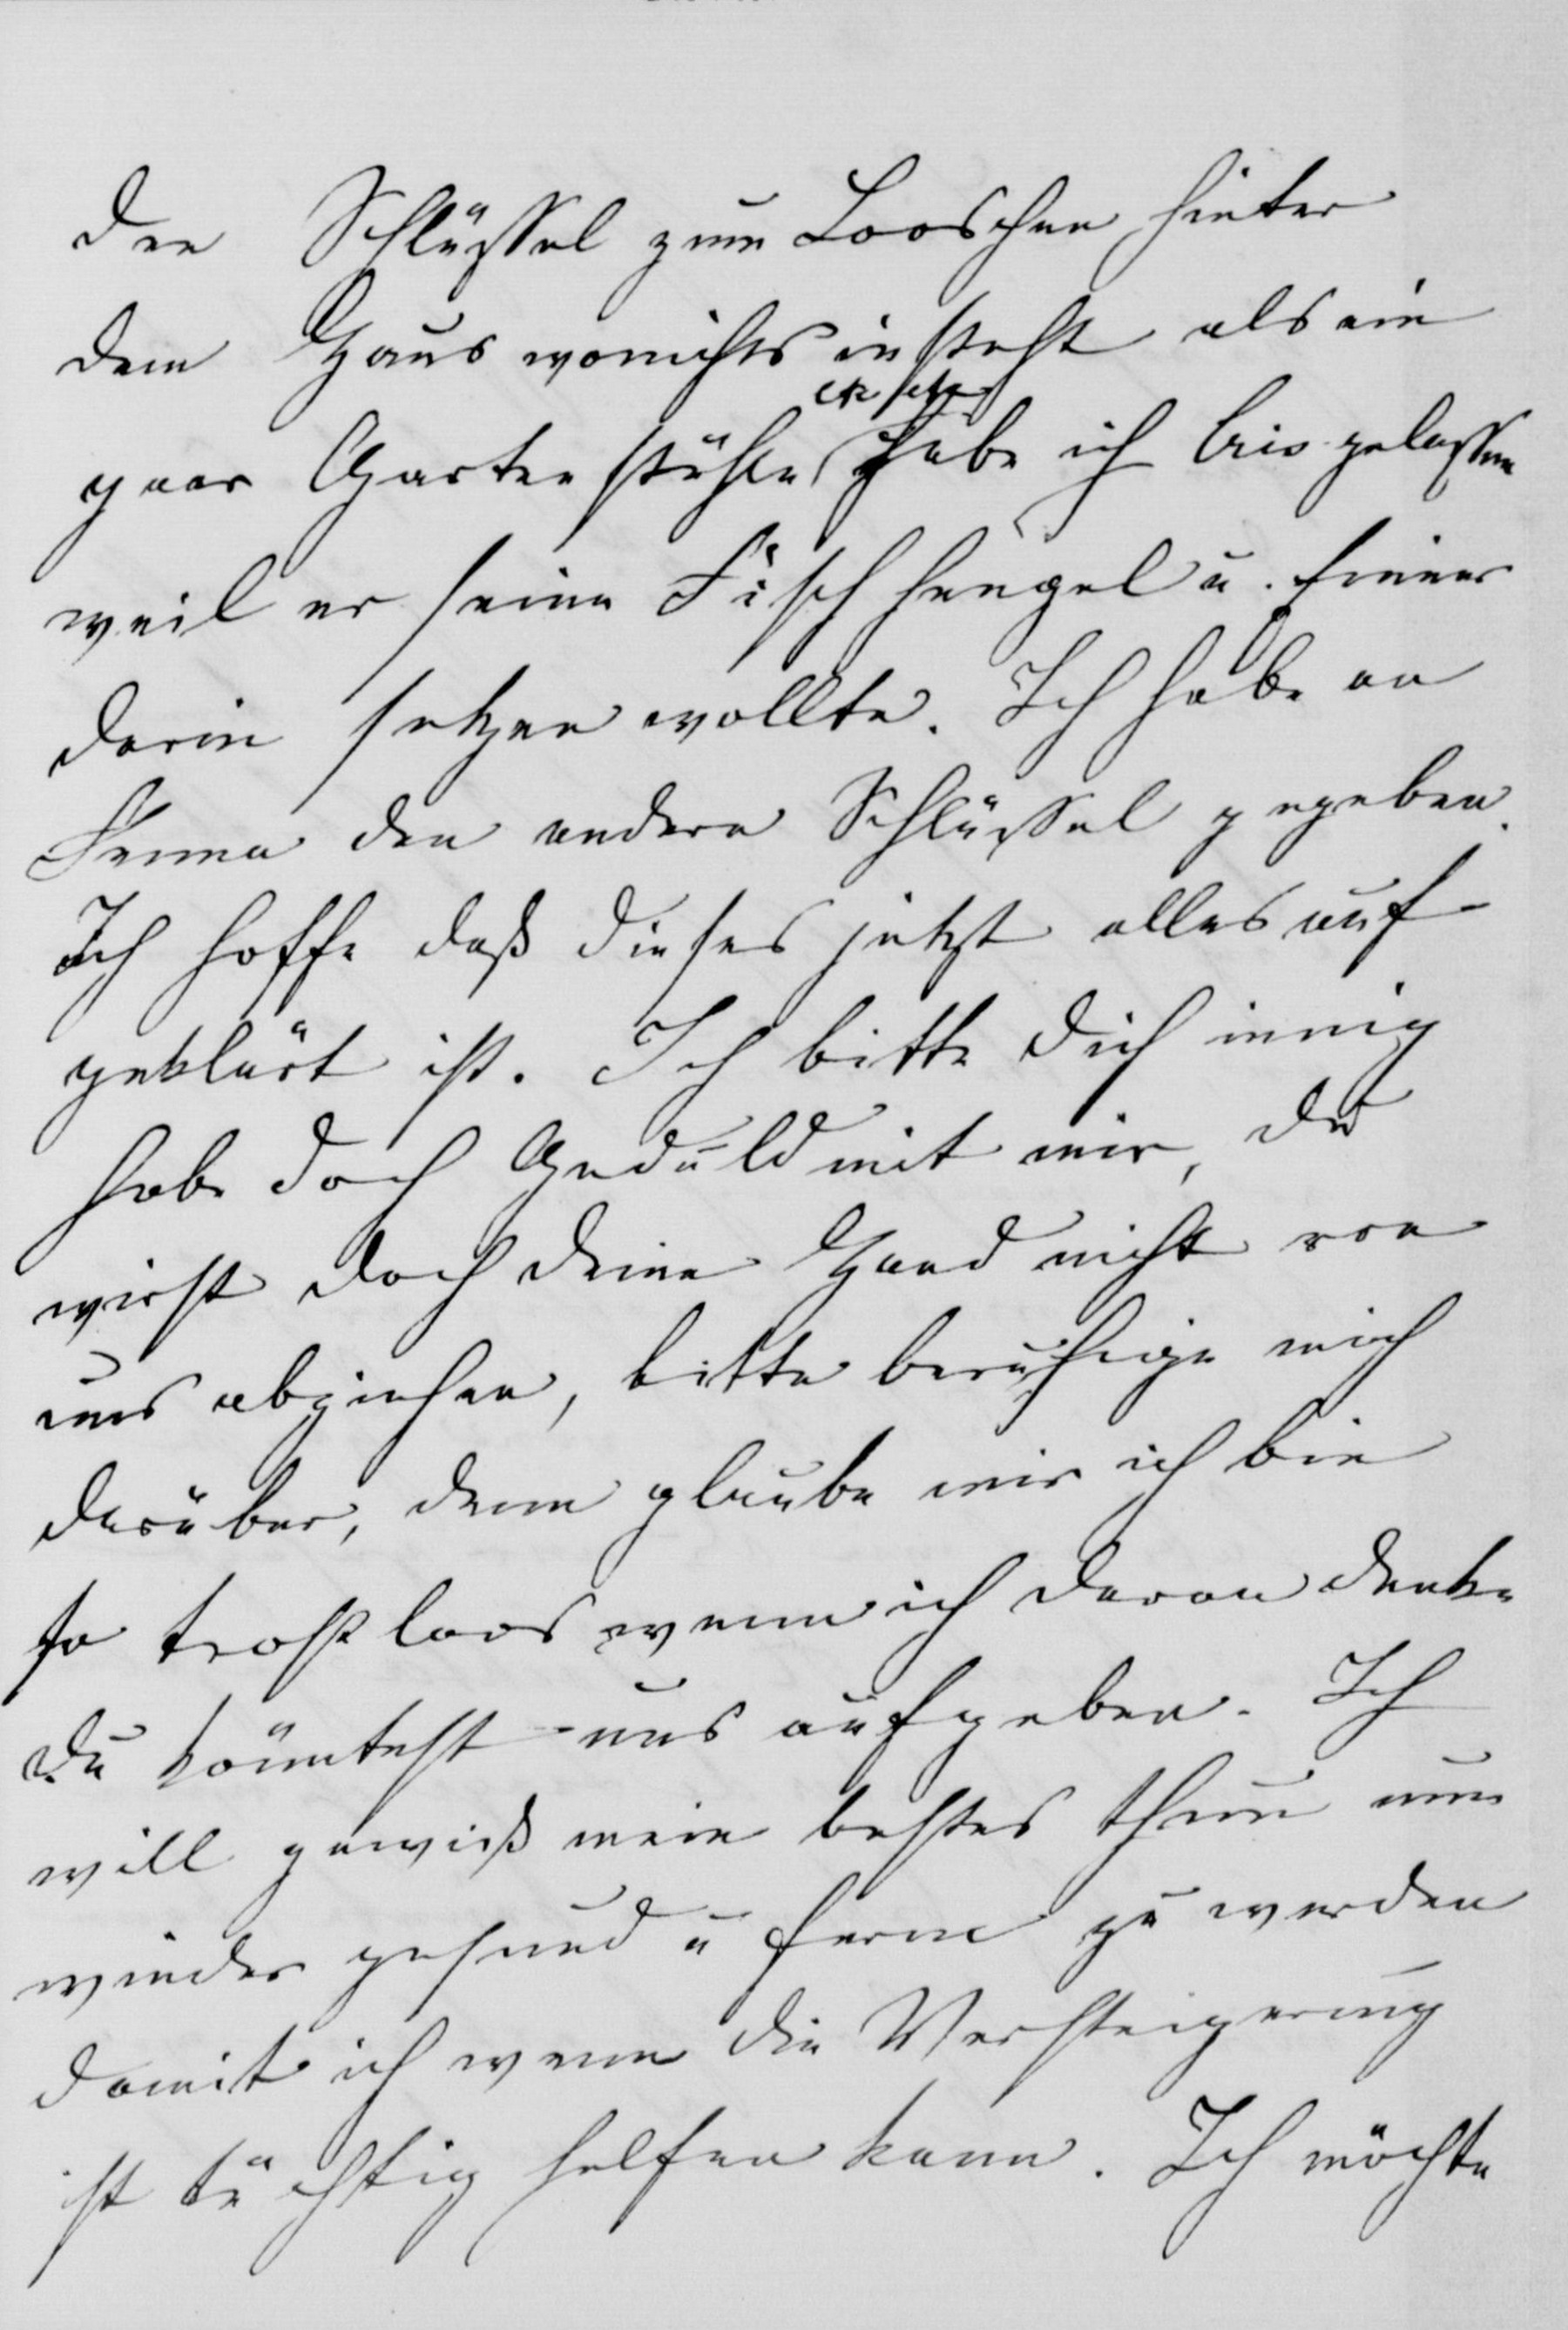 den Schlüssel zum Looschen hinter
dem Haus wonichts in steht als ein
paar Gartenstühle habe ich Cris gelassen
weil er seine Fisch hengel u. Eimer
darin setzen wollte. Ich habe an
Emma den andern Schlüssel gegeben.
Ich hoffe daß dieses jetzt alles auf-
geklärt ist. Ich bitte dich innig
habe doch Geduld mit mir, du
wirst doch deine Hand nicht von
uns abziehen, bitte beruhige mich
darüber, denn glaube mir ich bin
so trostloos wenn ich daran denke
du könntest uns aufgeben. Ich
will gewiß mein bestes thun um
wieder gesund u ferm zu werden
damit ich wenn die Versteigerung
ist tüchtig helfen kann. Ich möchte